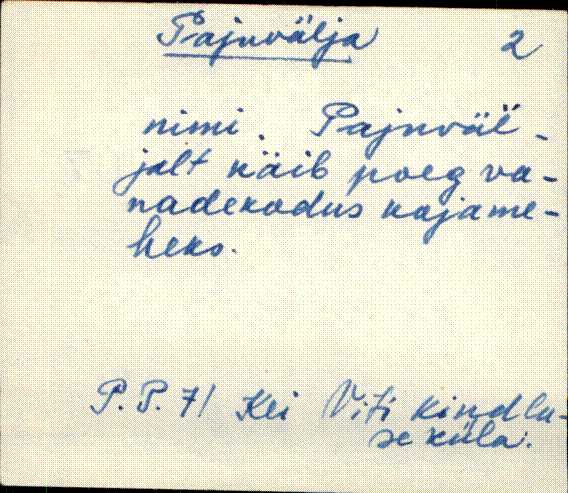 Pajuvälja 2
nimi. Pajuväl-
jalt käib poeg va-
nadekodus kojame-
heks.
P.P. 71 Kei Viti kindlu-
se küla.